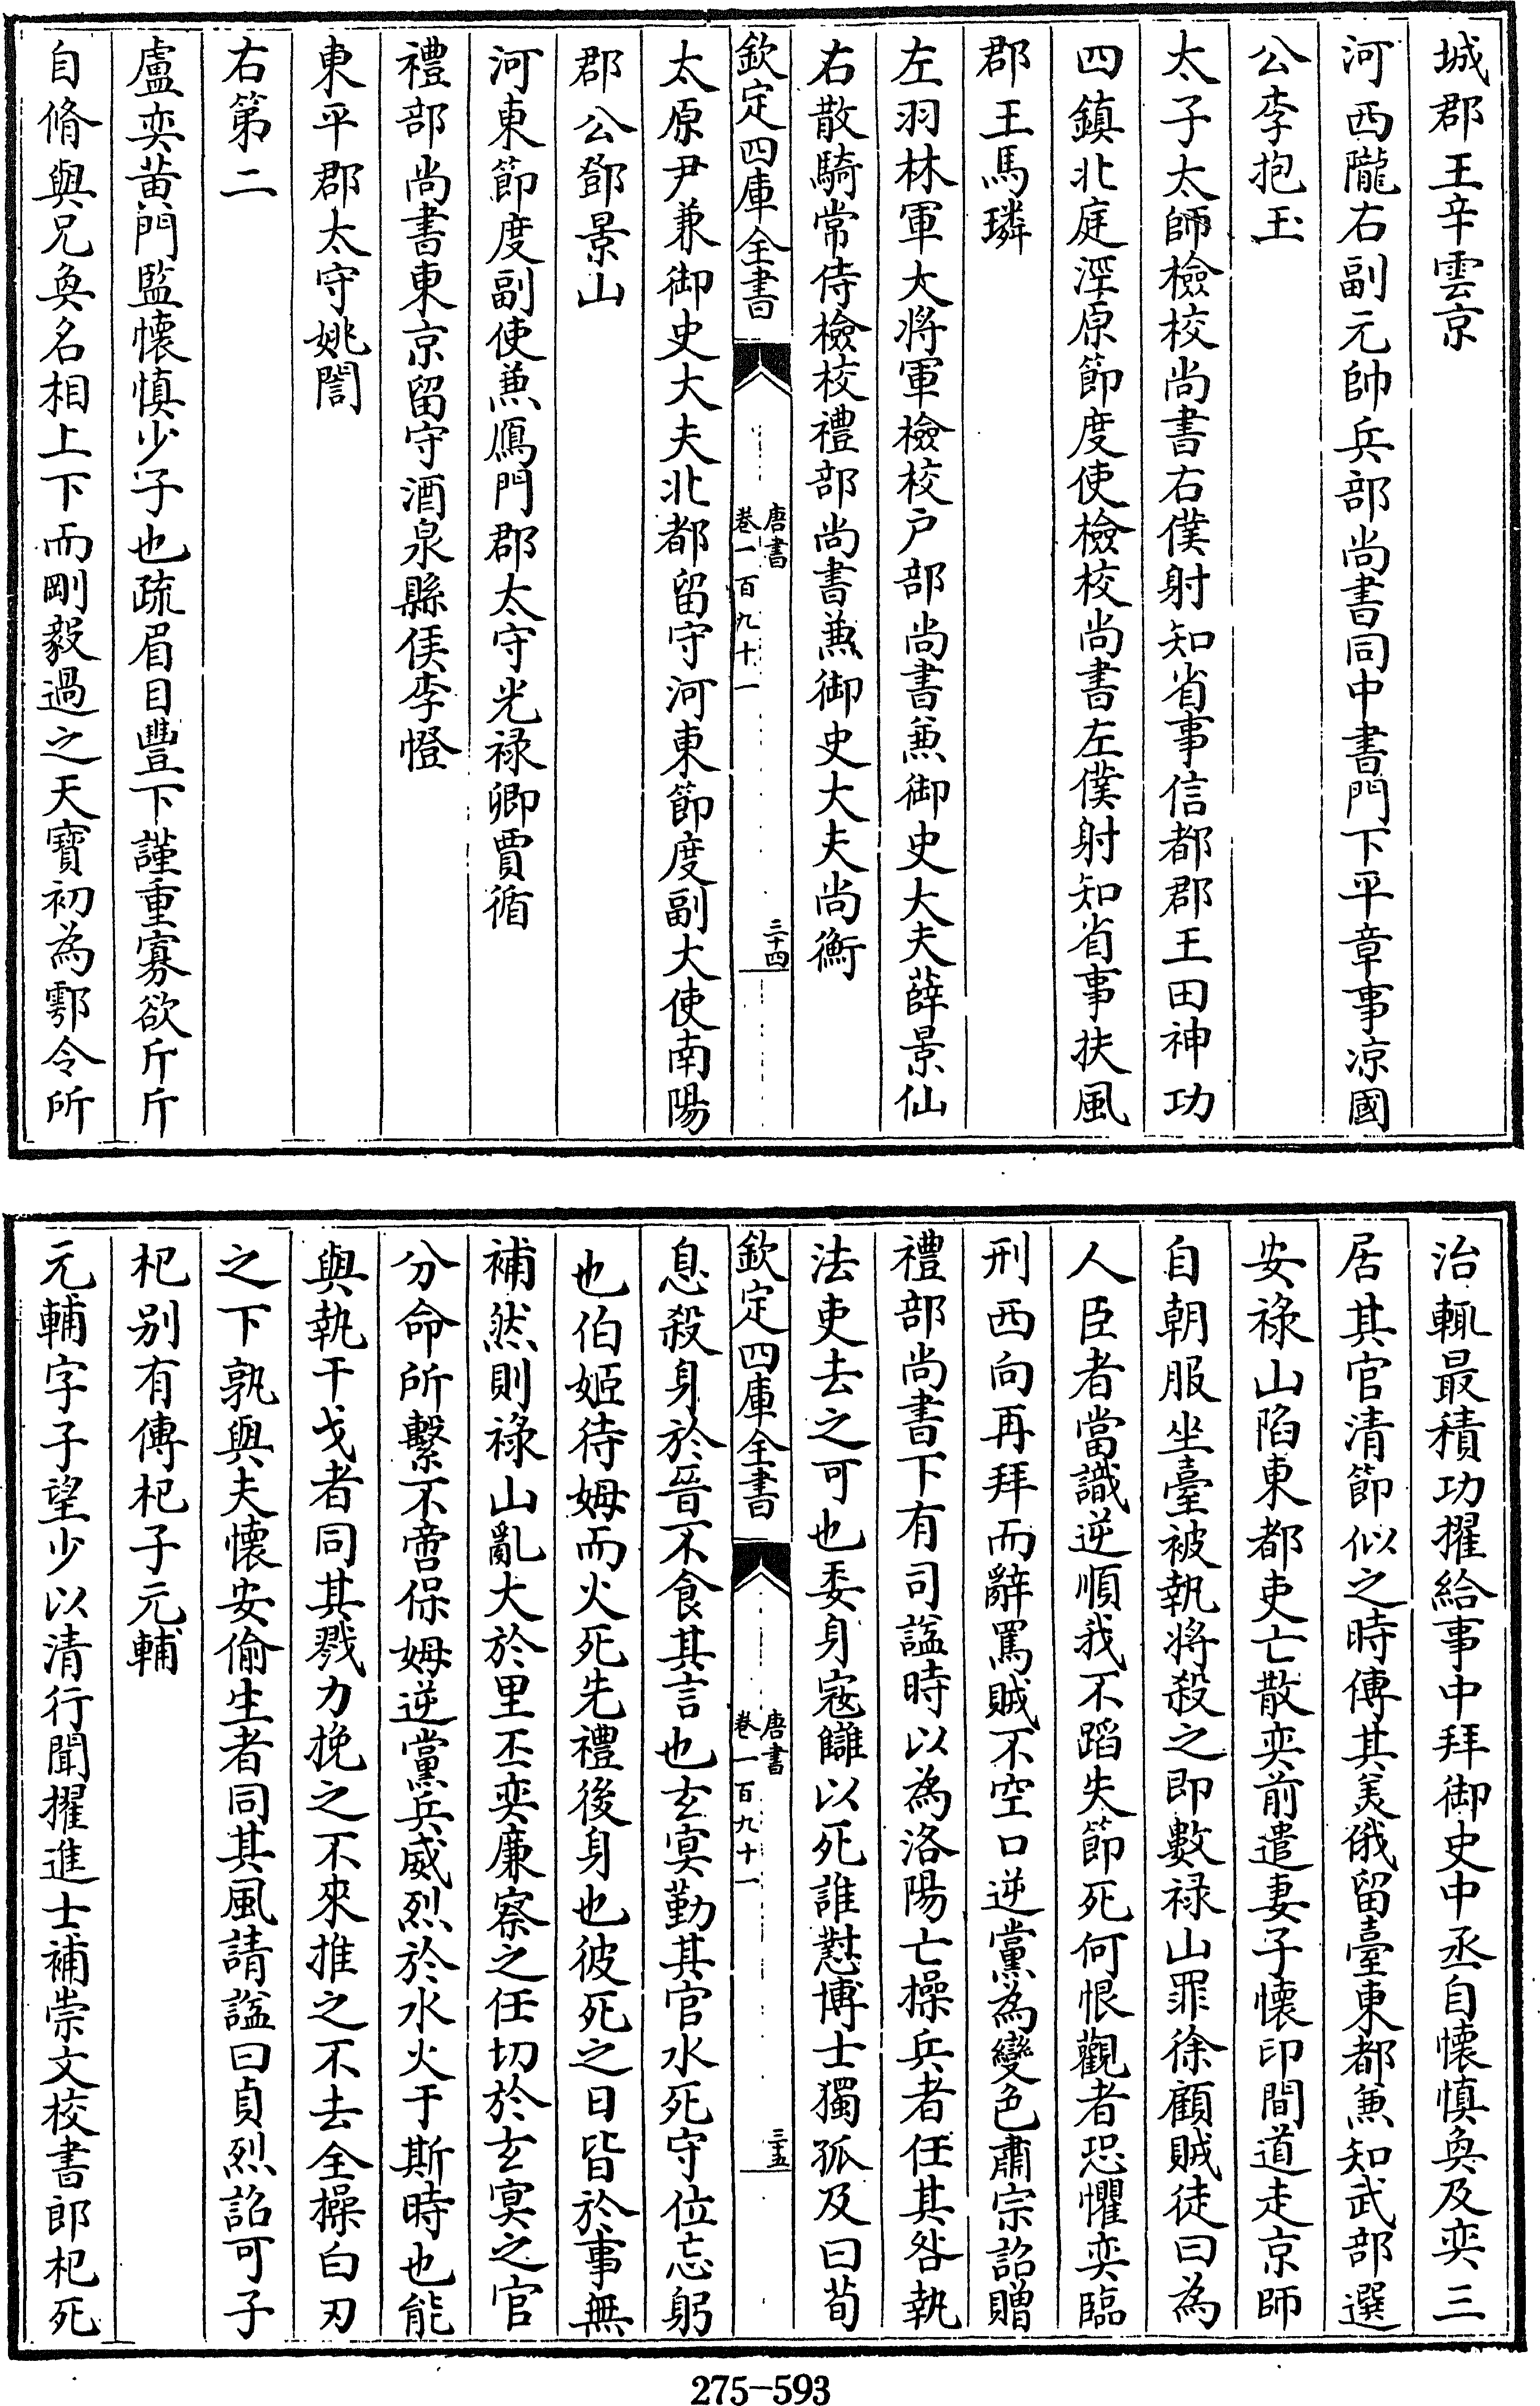 城郡王辛雲京
河西隴右副元帥兵部尚書同中書門下平章事凉國
公李抱玉
太子太師檢校尚書右僕射知省事信都郡王田神功
四鎮北庭涇原節度使檢校尚書左僕射知省事扶風
郡王馬璘
左羽林軍大將軍檢校户部尚書兼御史大夫薛景仙
右散騎常侍檢校禮部尚書兼御史大夫尚衡
欽定四庫全書
唐書
卷一百九十一
三十四
太原尹兼御史大夫北都留守河東節度副大使南陽
郡公鄧景山
河東節度副使兼鴈門郡太守光禄卿賈循
禮部尚書東京留守酒泉縣侯李憕
東平郡太守姚誾
右第二
盧奕黄門監懐慎少子也疏眉目豐下謹重寡欲斤斤
自脩與兄奐名相上下而剛毅過之天寳初為鄠令所
治輒最積功擢給事中拜御史中丞自懐慎奐及奕三
居其官清節似之時傳其美俄留臺東都兼知武部選
安祿山陷東都吏亡散奕前遣妻子懐印間道走京師
自朝服坐臺被執將殺之即數禄山罪徐顧賊徒曰為
人臣者當識逆順我不蹈失節死何恨觀者恐懼奕臨
刑西向再拜而辭罵賊不空口逆黨為變色肅宗詔贈
禮部尚書下有司諡時以為洛陽亡操兵者任其咎執
法吏去之可也委身宼讎以死誰懟博士獨孤及曰荀
欽定四庫全書
唐書
卷一百九十一
三十五
息殺身於晉不食其言也玄㝠勤其官水死守位忘躬
也伯姬待姆而火死先禮後身也彼死之日皆於事無
補然則祿山亂大於里丕奕廉察之任切於玄㝠之官
分命所繫不啻保姆逆黨兵威烈於水火于斯時也能
與執干戈者同其戮力挽之不來推之不去全操白刃
之下孰與夫懐安偷生者同其風請諡曰貞烈詔可子
杞别有傳杞子元輔
元輔字子望少以清行聞擢進士補崇文校書郎杞死
275-593